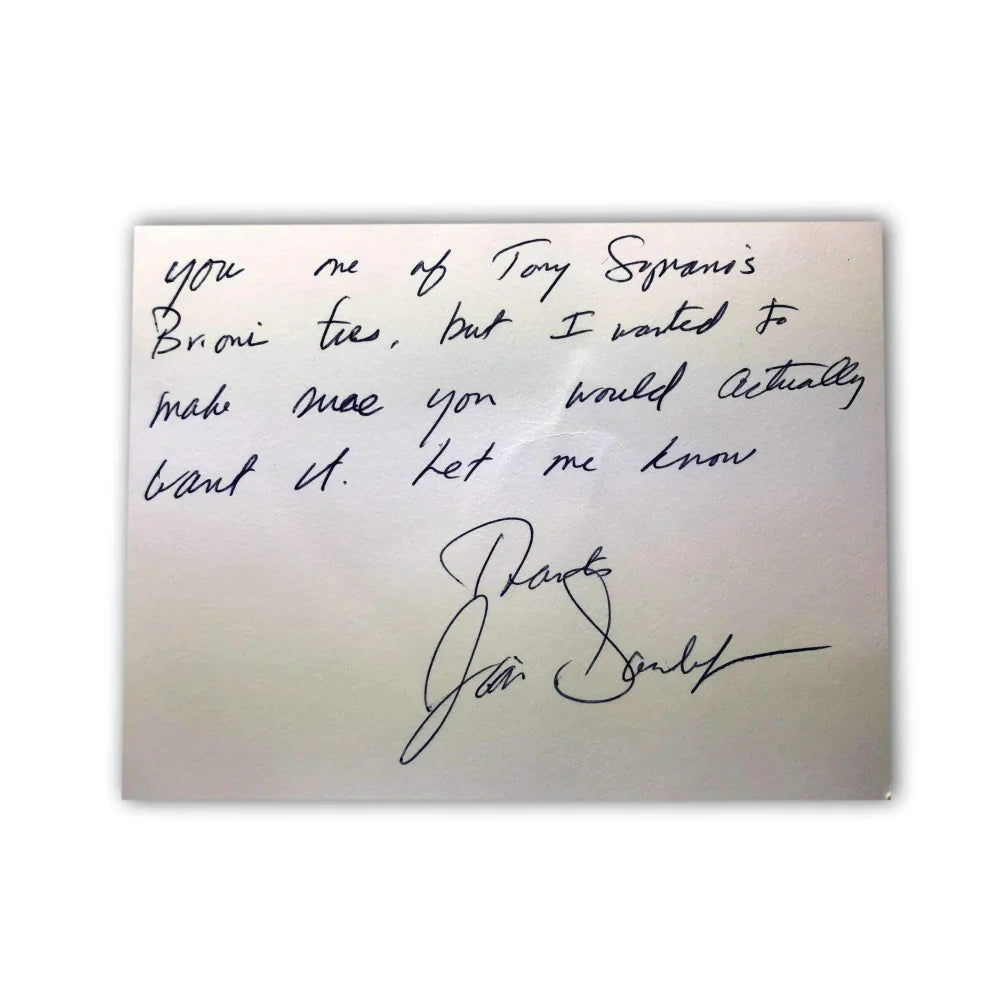 you one of Tony Soprano's
Brioni ties, but I wanted to
make sure you would actually
want it. Let me know
Thanks
Jim Gandolf